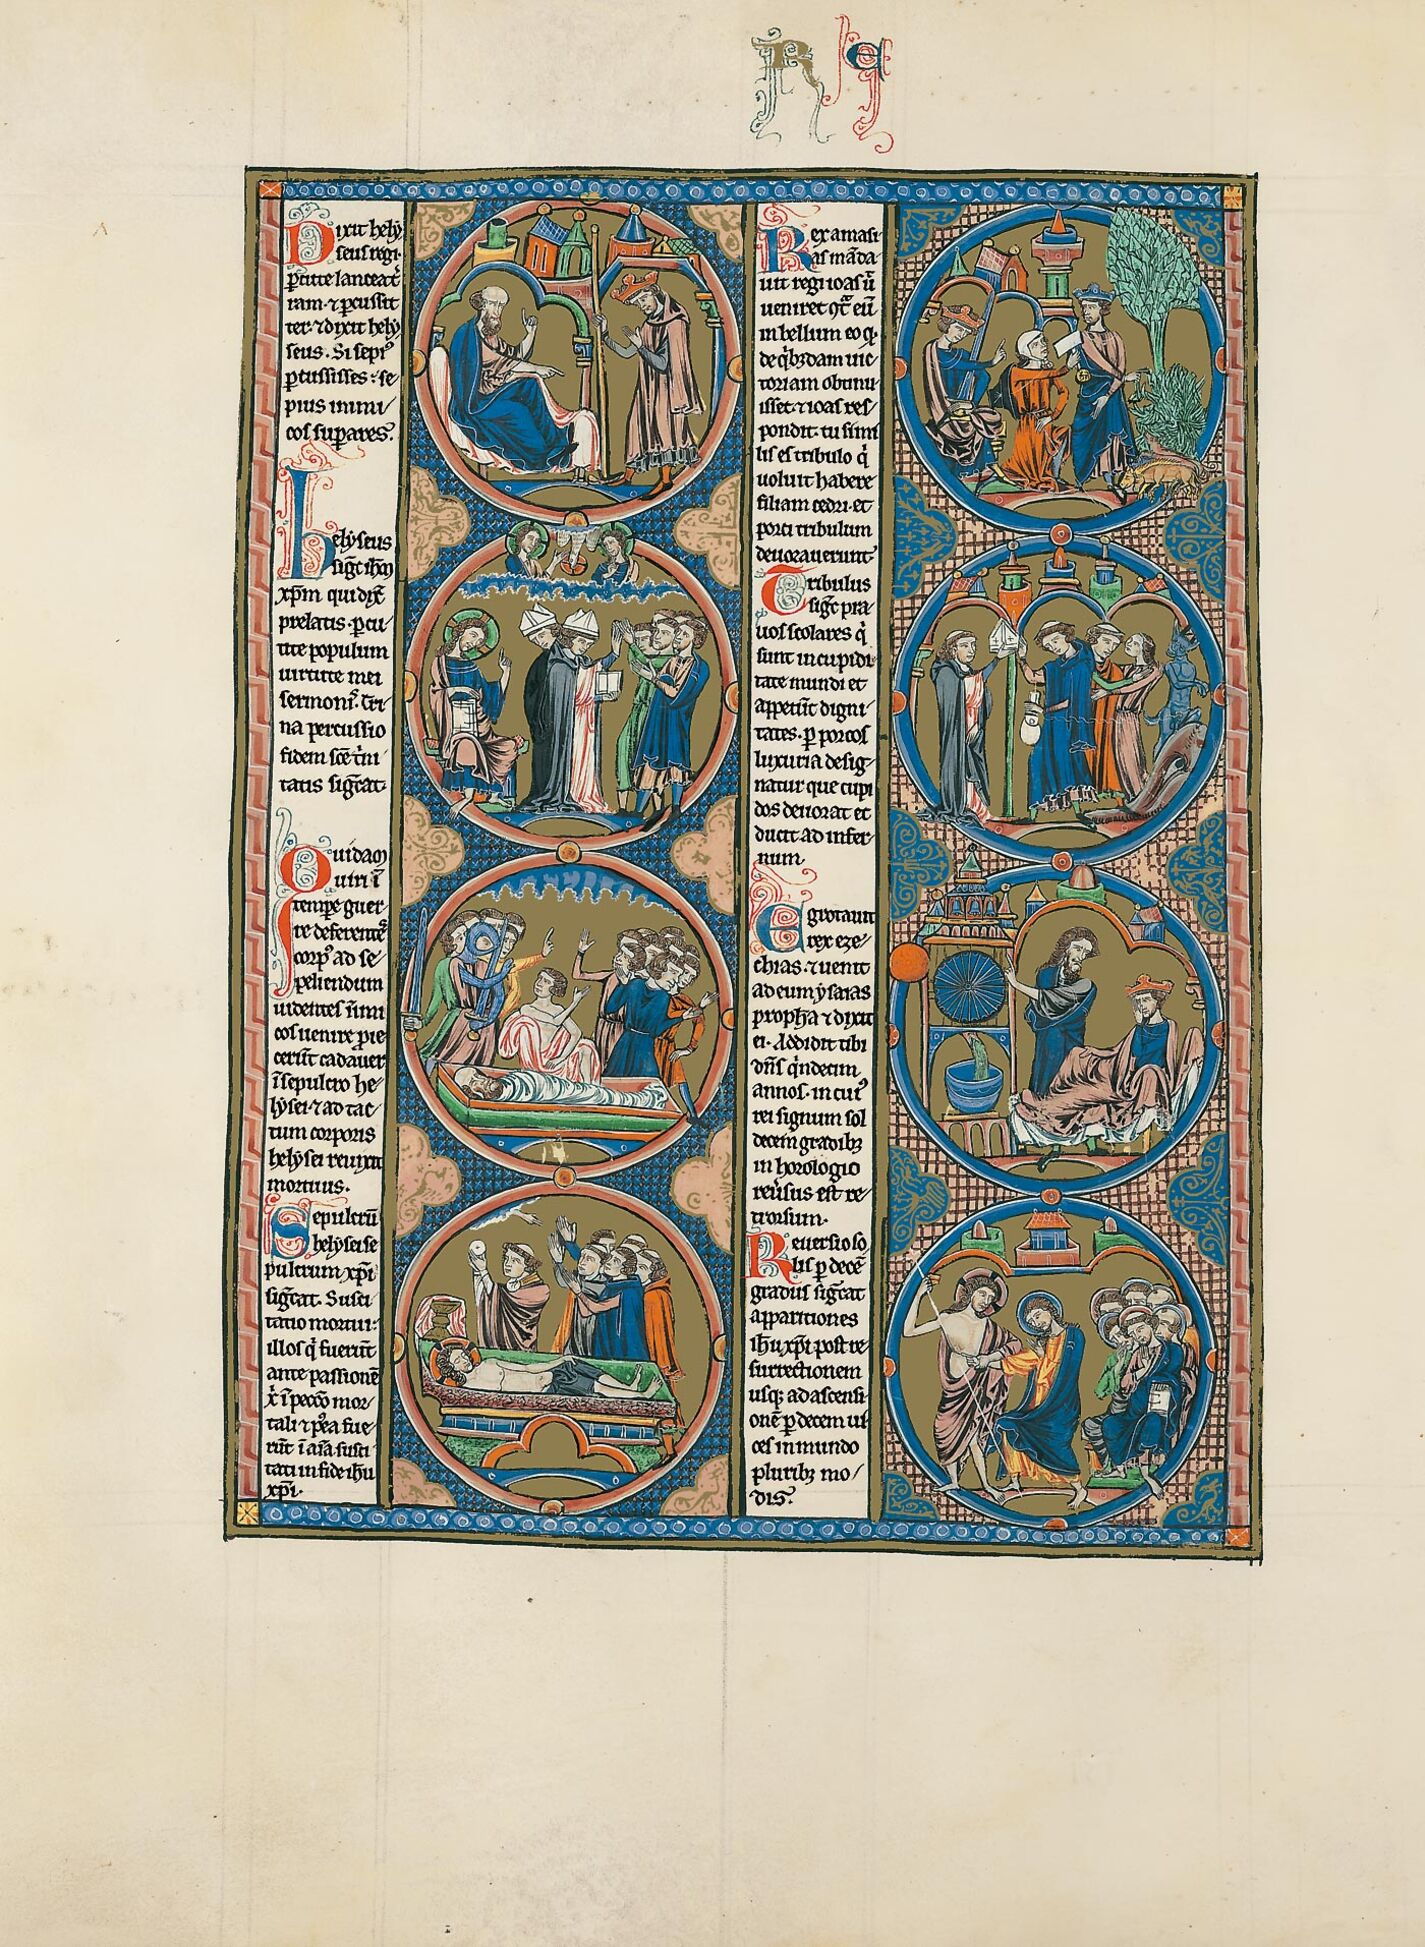 R IIII
Dixit hely
seus regi.
p̄cute lancea t̄
ram. ⁊ p̄cussit
ter. ⁊ dixit hely
seus. Si sepiꝰ
p̄cussisses: se
pius inimi
cos suparares.
helyseus
sigᷓt ihm
xp̄m qui dic̄
prelatis. p̄cu
tite populum
uirtute mei
sermonis. tri
na percussio
fidem sc̄e t̄ni
tatis sigᷓcat.
Quidam
uiri ī
tempe guer
re deferentes
corpꝰ ad se
peliendum
uidentes inimi
cos uenire pie
cerūt cadauer
ī sepulcro he
lysei. ⁊ ad tac
tum corporis
helysei reuixit
mortuus.
Sepulcrū
helysei se
pulcrum xp̄i
sigᷓcat. Susci
tatio mortui:
illos q̄ fuerūt
ante passionē
x̄ ī pecc̄o mor
tali ⁊ p̄ea fue
rūt ī aīa susci
tati in fide ihu
xp̄i.
Rex amasi
as māda
uit regi ioas ū
ueniret 9tᷓ eū
in bellum eo q̵
de q̄bꝫdam uic
toriam obtinu
isset. ⁊ ioas res
pondit. tu simi
lis es tribulo q̄
uoluit habere
filiam cedri. et
porci tribulum
deuorauerunt
Tribulus
sigᷓt pra
uos scolares q̄
sunt in cupidi
tate mundi et
appetūt digni
tates. p porcos
luxuria desig
natur que cupi
dos deuorat et
ducit ad infer
num
Egrotauit
rex eze
chias. ⁊ uenit
ad eum ysaias
propha ⁊ dixit
ei. Addidit tibi
dn̄s q̄ndecim
annos. in cuiꝰ
rei signum sol
decem gradibꝫ
in horologio
reuersus est re
trorsum.
Reuersio so
lis p decē
gradus sigᷓcat
apparitiones
ihu xp̄i post re
surrectionem
usq̵ ad ascensi
onē p decem ui
ces in mundo
pluribꝫ mo
dis.